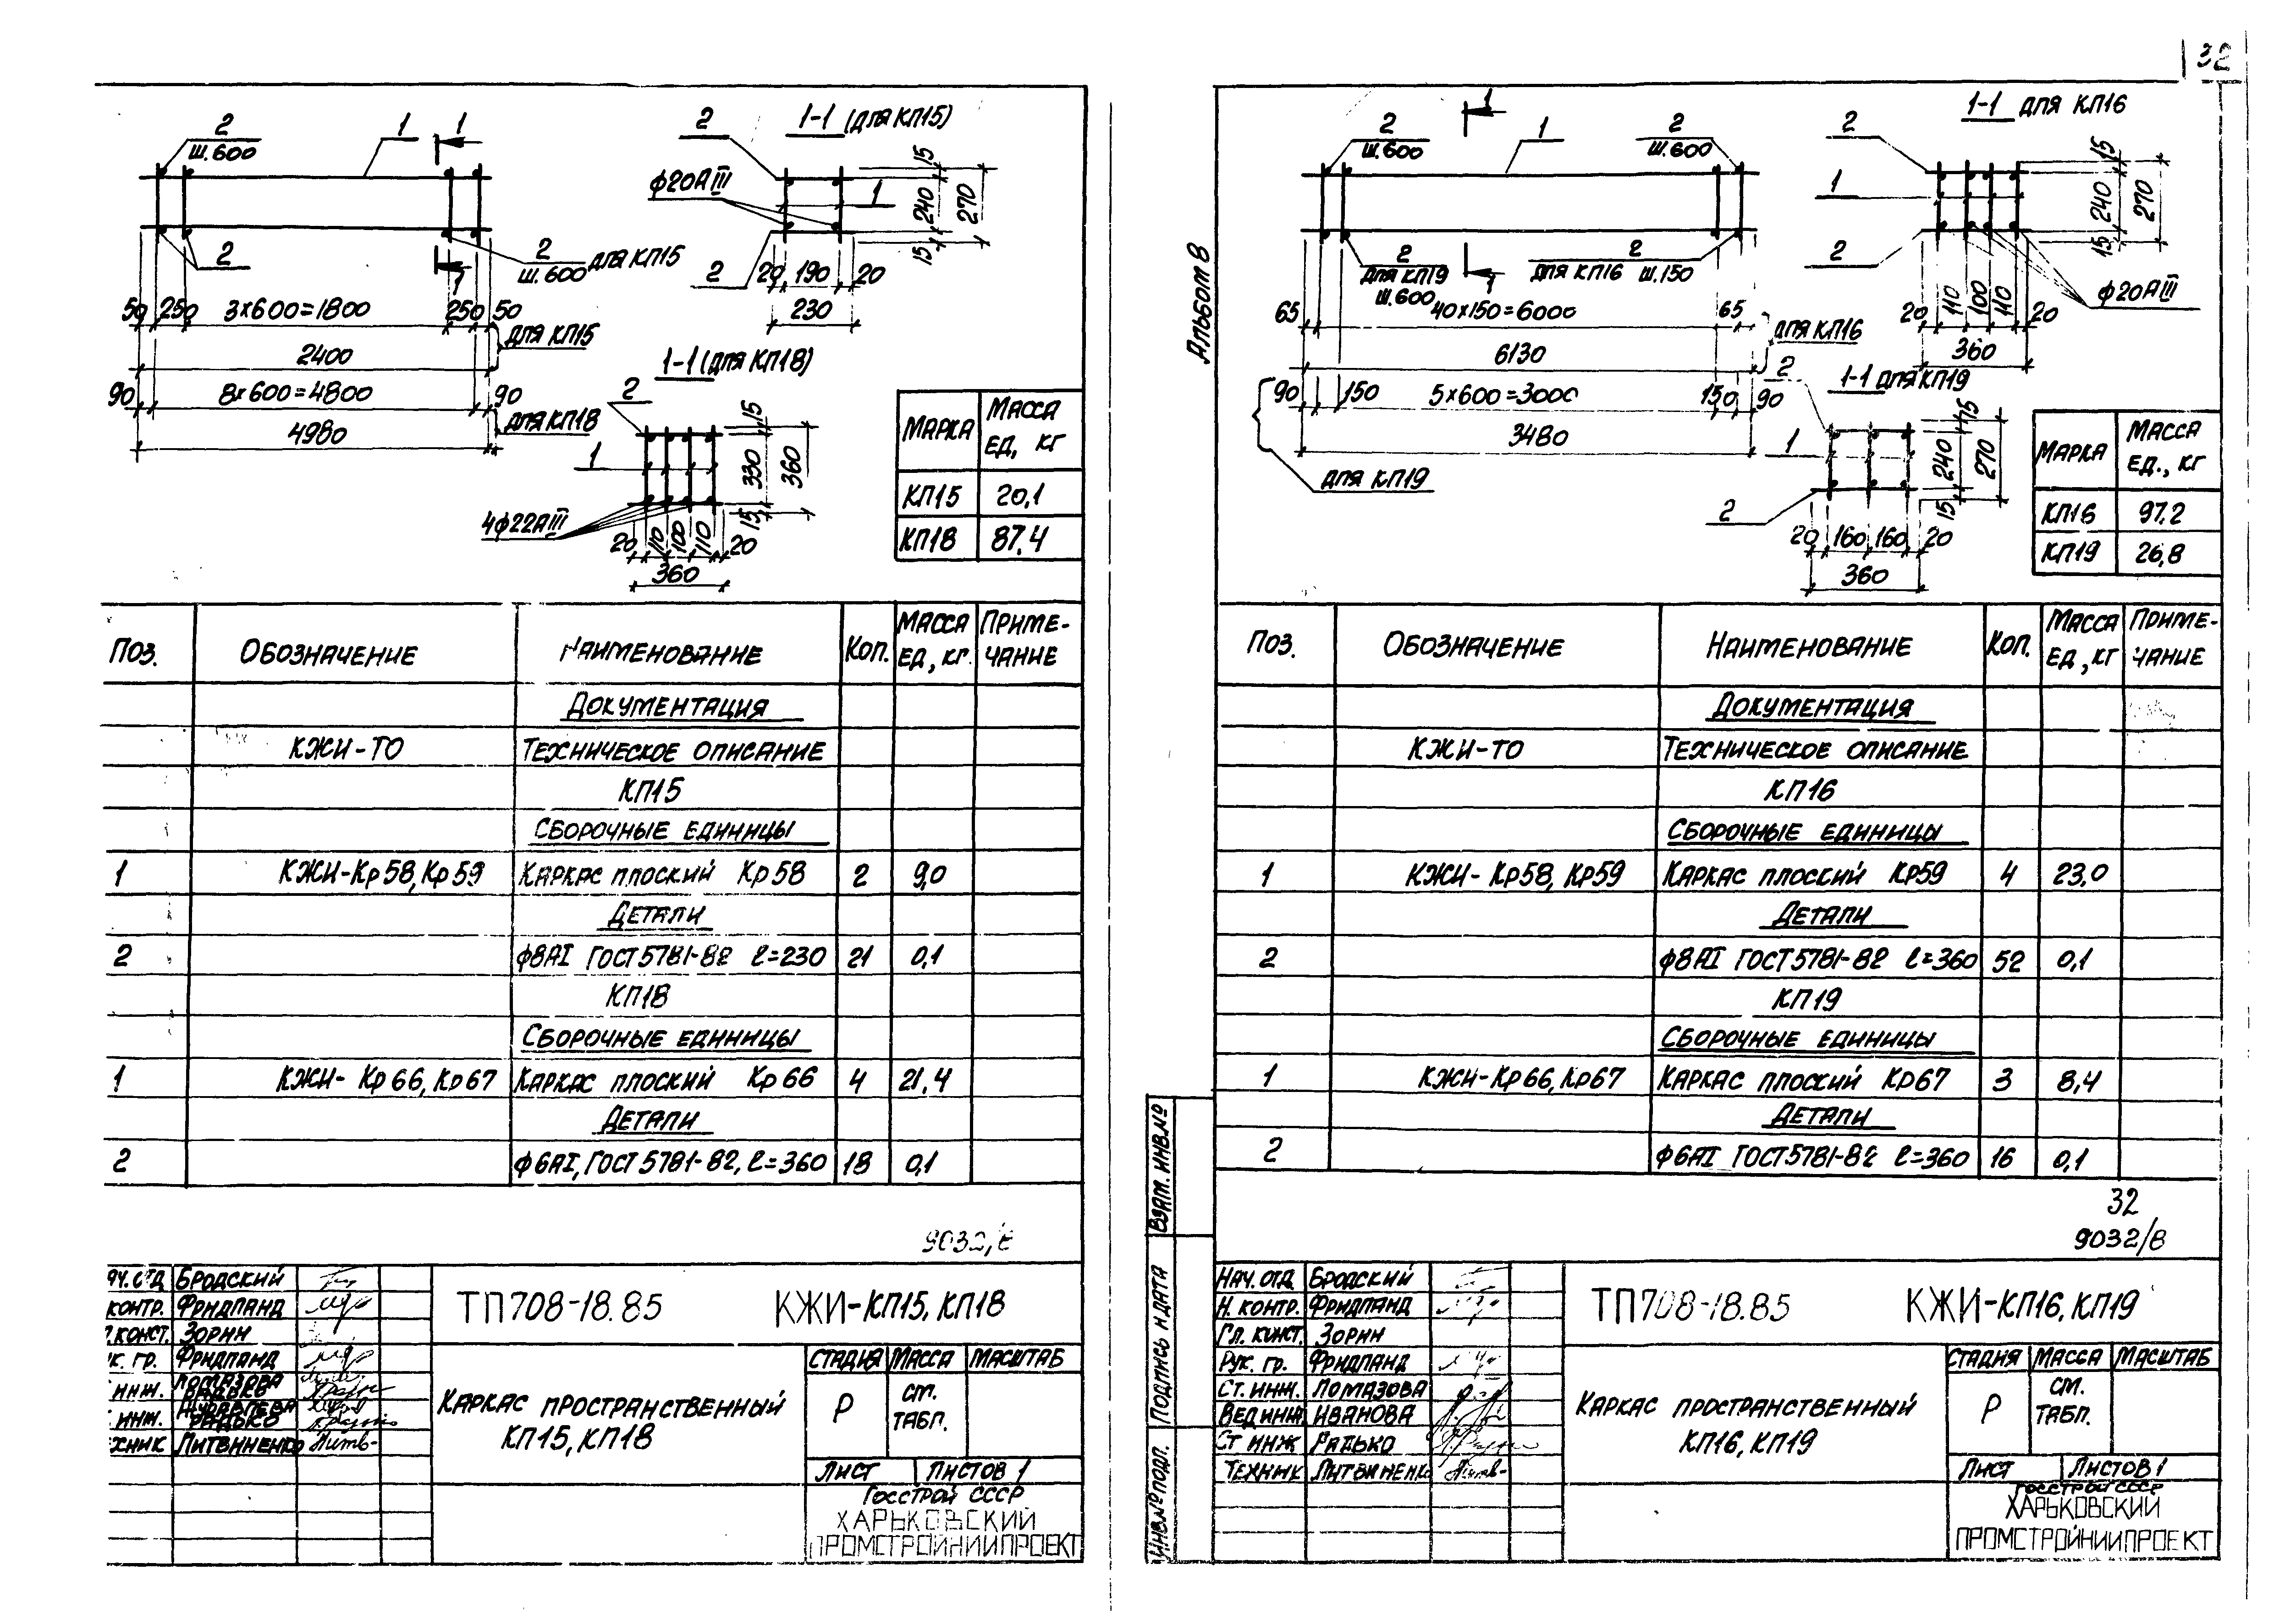 32
2
Ш.600
1
1
2
2
Ш.600
для КП15
1
50
250
3х600=1800
250
50
для КП15
2400
90
8х600=4800
90
для КП18
4980
1-1 (для КП15)
2
ф20АIII
1
2
15
240
270
15
20
190
20
230
1-1 (для КП18)
2
1
4ф22АIII
15
330
360
15
20
110
100
110
20
360
МАРКА
МАССА ЕД, КГ
КП15 20,1
КП18 87,4
ПОЗ. ОБОЗНАЧЕНИЕ НАИМЕНОВАНИЕ КОЛ. МАССА ЕД, КГ. ПРИМЕ-ЧАНИЕ
ДОКУМЕНТАЦИЯ
КЖИ-ТО ТЕХНИЧЕСКОЕ ОПИСАНИЕ
КП15
СБОРОЧНЫЕ ЕДИНИЦЫ
1 КЖИ-Кр58, Кр59 КАРКАС ПЛОСКИЙ Кр58 2 9,0
ДЕТАЛИ
2 ф8АI ГОСТ5781-82 ℓ=230 21 0,1
КП18
СБОРОЧНЫЕ ЕДИНИЦЫ
1 КЖИ-Кр66, Кр67 КАРКАС ПЛОСКИЙ Кр66 4 21,4
ДЕТАЛИ
2 ф6АI, ГОСТ5781-82, ℓ=360 18 0,1
9032/8
АЧ.ОТД БРОДСКИЙ
КОНТР. ФРИДЛАНД
КОНСТ. ЗОРИН
К. ГР. ФРИДЛАНД
ИНЖ. ЛОМАЗОВА РАДЬКО
ИНЖ. РАДЬКО
ХНИК ЛИТВИНЕНКО
ТП708-18.85 КЖИ-КП15, КП18
КАРКАС ПРОСТРАНСТВЕННЫЙ
КП15, КП18
СТАДИЯ МАССА МАСШТАБ
Р СМ. ТАБЛ.
ЛИСТ ЛИСТОВ 1
ГОССТРОЙ СССР
ХАРЬКОВСКИЙ
ПРОМСТРОЙНИИПРОЕКТ
Альбом 8
2
Ш.600
1
1
2
Ш.600
2
для КП19
Ш.600
1
2
для КП16 Ш.150
65
40х150=6000
65
для КП16
6130
90
150
5х600=3000
150
90
3480
для КП19
1-1 для КП16
2
1
2
15
240
270
15
ф20АIII
20
110
100
110
20
360
1-1 для КП19
2
1
2
15
240
270
15
20
160
160
20
360
МАРКА
МАССА ЕД., КГ
КП16 97,2
КП19 26,8
ПОЗ. ОБОЗНАЧЕНИЕ НАИМЕНОВАНИЕ КОЛ. МАССА ЕД, КГ ПРИМЕ-ЧАНИЕ
ДОКУМЕНТАЦИЯ
КЖИ-ТО ТЕХНИЧЕСКОЕ ОПИСАНИЕ
КП16
СБОРОЧНЫЕ ЕДИНИЦЫ
1 КЖИ-Кр58, Кр59 КАРКАС ПЛОСКИЙ Кр59 4 23,0
ДЕТАЛИ
2 ф8АI ГОСТ5781-82 ℓ=360 52 0,1
КП19
СБОРОЧНЫЕ ЕДИНИЦЫ
1 КЖИ-Кр66, Кр67 КАРКАС ПЛОСКИЙ Кр67 3 8,4
ДЕТАЛИ
2 ф6АI ГОСТ5781-82 ℓ=360 16 0,1
32
9032/8
ИНВ.№ ПОДЛ. ПОДПИСЬ И ДАТА ВЗАМ. ИНВ.№
НАЧ. ОТД БРОДСКИЙ
Н. КОНТР. ФРИДЛАНД
ГЛ. КОНСТ. ЗОРИН
РУК. ГР. ФРИДЛАНД
СТ. ИНЖ. ЛОМАЗОВА
ВЕД ИНЖ ИВАНОВА
СТ ИНЖ РАДЬКО
ТЕХНИК ЛИТВИНЕНКО
ТП708-18.85 КЖИ-КП16, КП19
КАРКАС ПРОСТРАНСТВЕННЫЙ
КП16, КП19
СТАДИЯ МАССА МАСШТАБ
Р СМ. ТАБЛ.
ЛИСТ ЛИСТОВ 1
ГОССТРОЙ СССР
ХАРЬКОВСКИЙ
ПРОМСТРОЙНИИПРОЕКТ